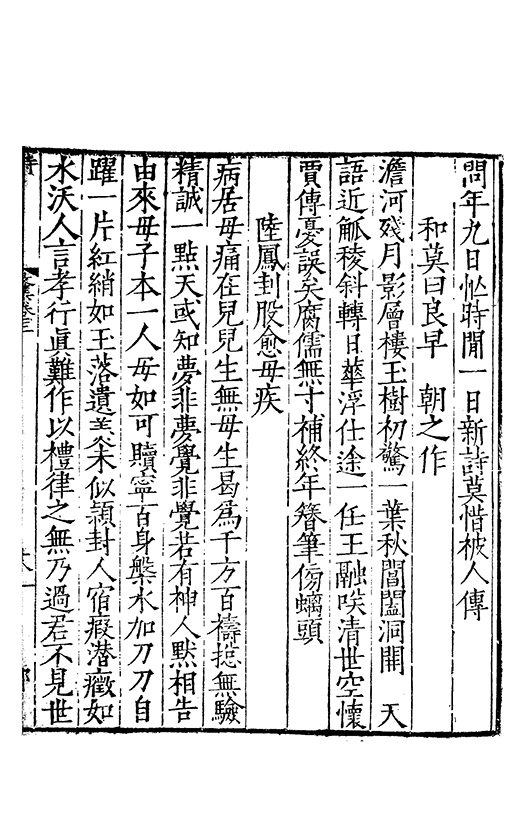 問年九日忙時閒一日新詩莫惜被人傳
和莫曰良早　朝之作
澹河殘月影層樓玉樹初驚一葉秋閶闔洞開　天
語近觚稜斜轉日華浮仕途一任王融唉清世空懷
賈傅憂誤矣腐儒無寸補終年簪筆傍螭頭
陸鳳封股愈母疾
病居母痛在兒兒生無母生曷爲千方百禱揔無驗
精誠一點天或知夢非夢覺非覺若有神人黙相告
由來母子本一人母如可贖寧百身槃水加刀刀自
躍一片紅綃如玉落遺羙未似頴封人宿瘕潜癥如
水沃人言孝行眞難作以禮律之無乃過君不見世